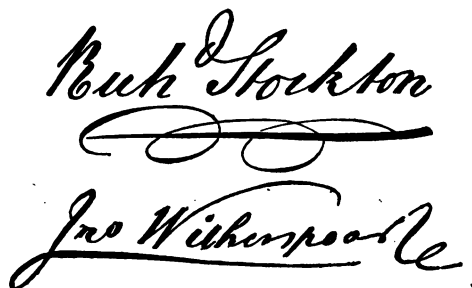 Richd Stockton
Jno Witherspoon